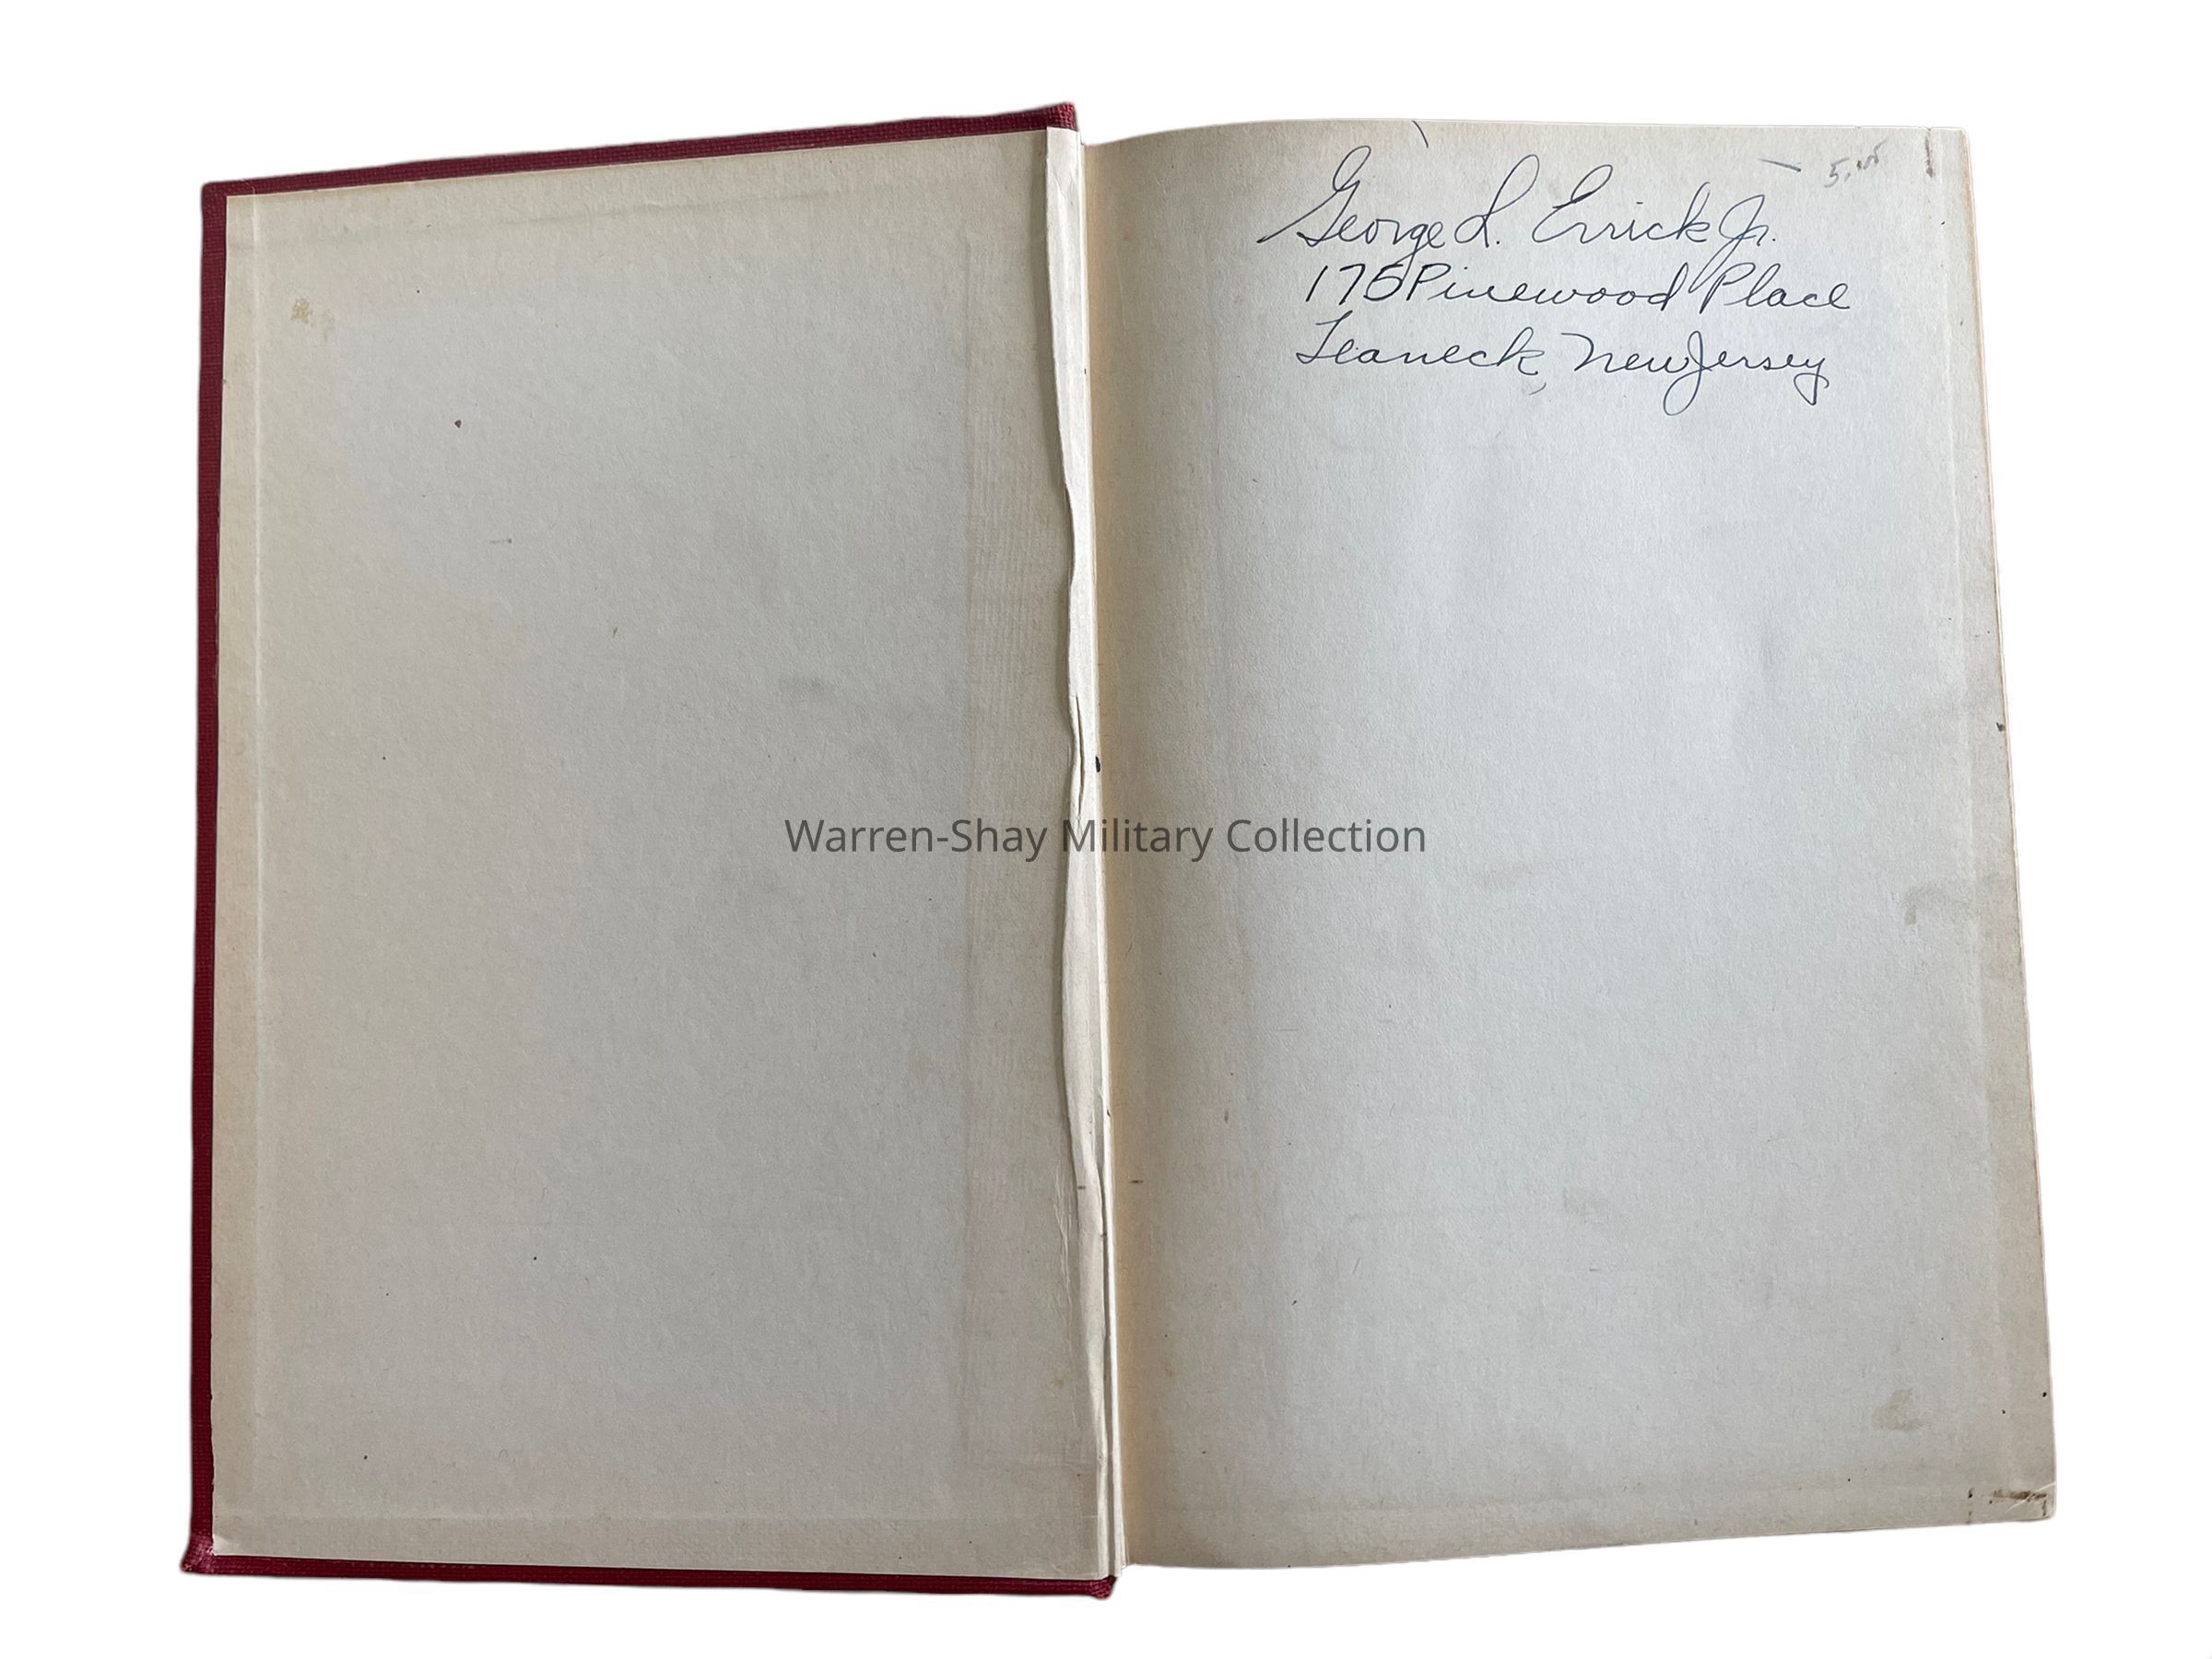 George L. Errick Jr.
175 Pinewood Place
Teaneck, New Jersey
Warren-Shay Military Collection